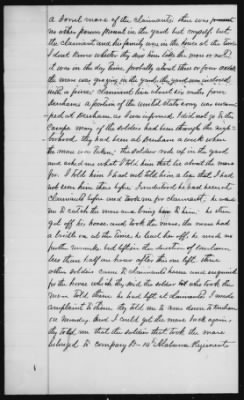 a bond more of the claimants there was present
no other person present in the yard but myself but
the claimant and his family was in the house at the time
I don't know whether they saw him take the mare or not
it was in the day time, probably about three or four oclock
the mare was grazing in the yard, the yard was inclosed
with a fence Claimant lives about six miles from
Dursham a portion of the united States army was encam
ped at Dursham as I was informed, I did not go to the
Camps many of the soldiers had been through the neigh-
borhood they had been at Dursham a week when
the mare was taken, the soldier rode up in the yard
and asked me what I told him that lie about the mare
for I told him I had not told him a lie that I had
not seen him this before I understood he had been at
Claimants before and saw him for claimant, he said
me to catch the mare and bring her to him he then
got off his horse and took the mare, the mare had
a bridle on at the time he lead her off, he made no
further remarks but left in the direction of Dursham
less than half an hour after this one left three
other soldiers came to Claimants house and enquired
for the horse which they said the soldier who took the
mare told them he had left at Claimants I made
complaint to them they told me to come down to Dursham
on Monday And I could get the mare back again.
they told me that the soldier that took the mare
belonged to Company D 10 Alabama Regiment